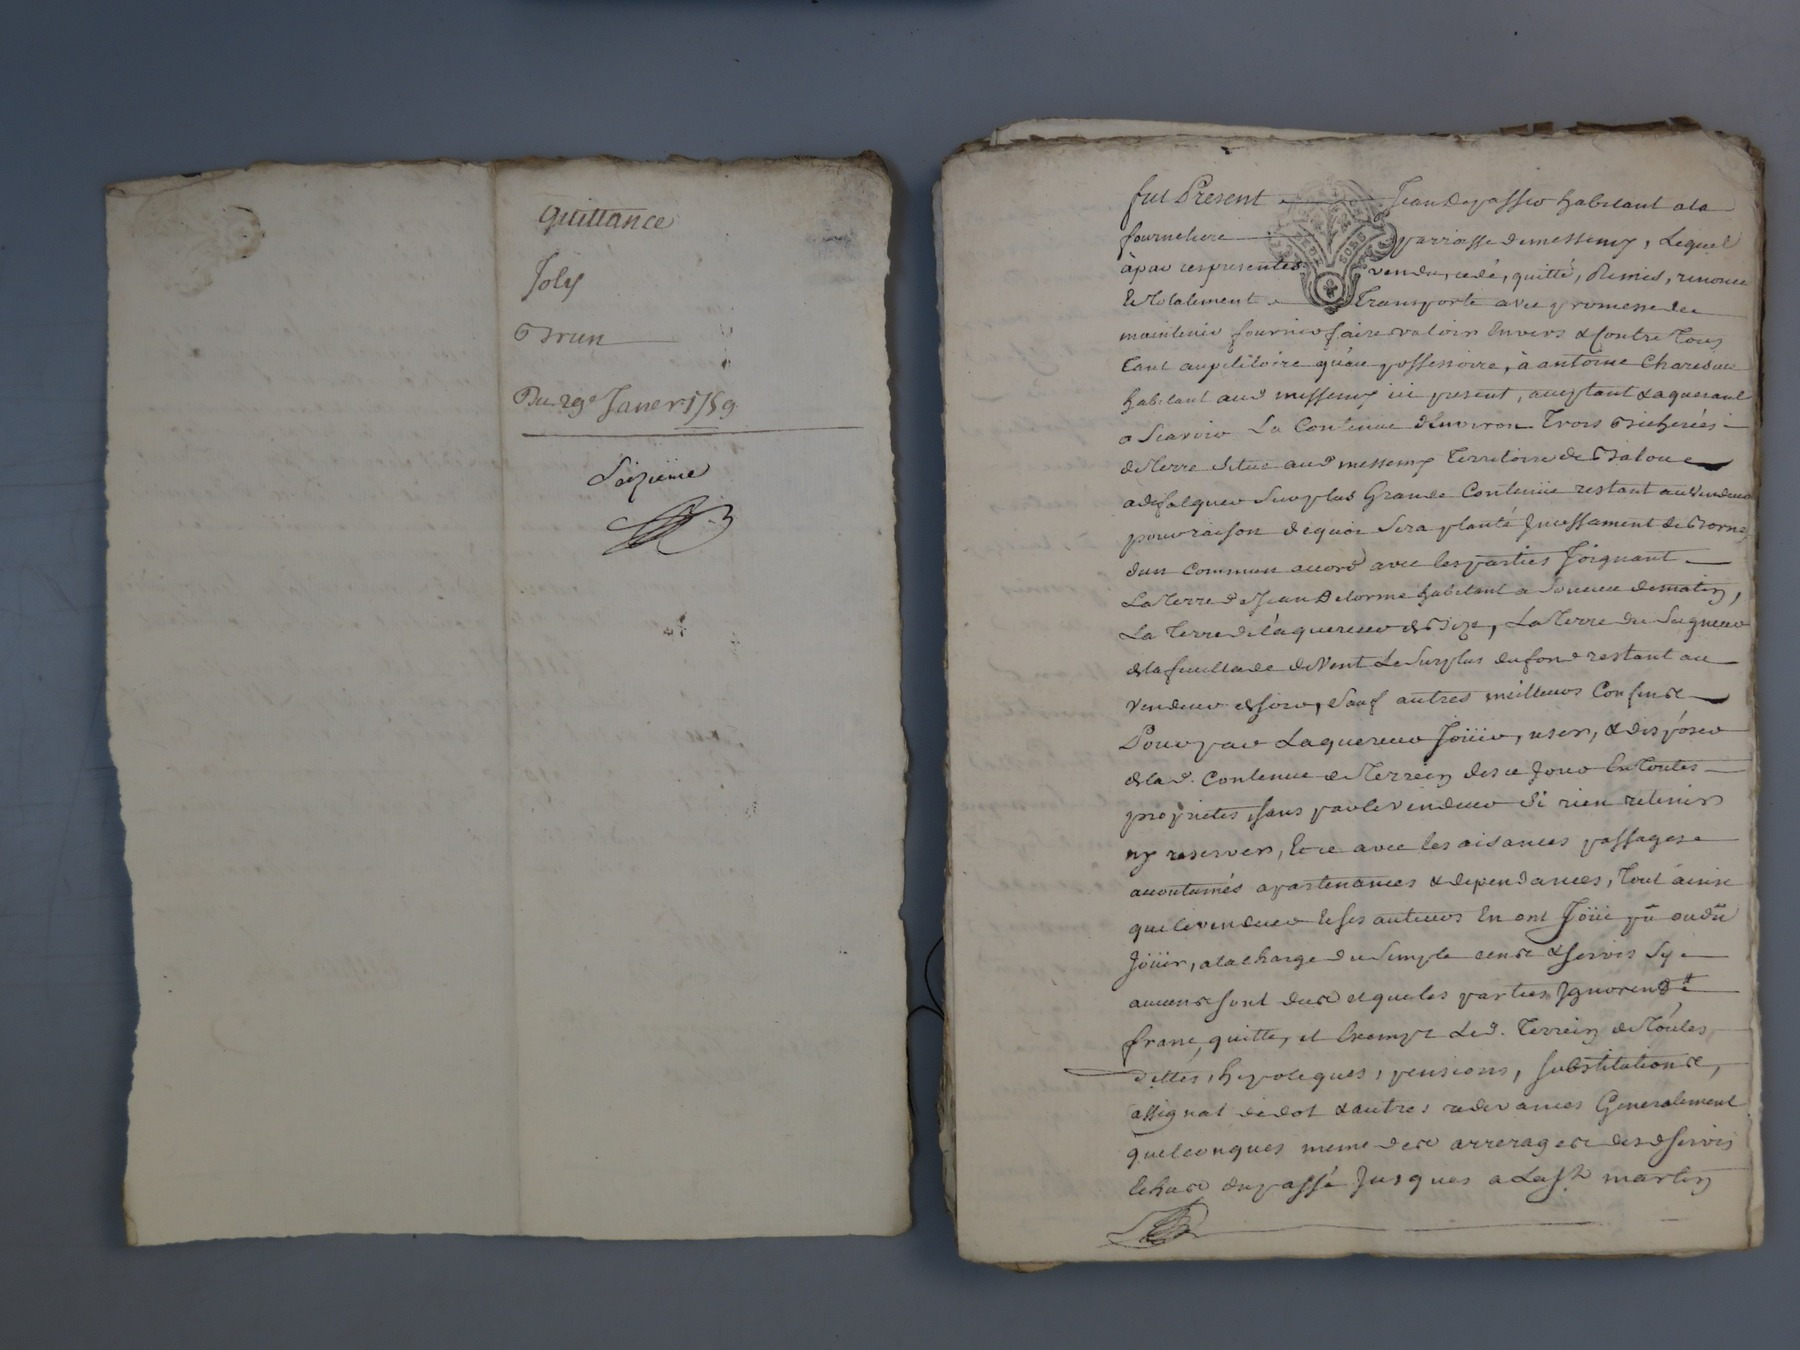 quittance
Joly
Brun
Du 29e Janer 1759
Saizieme
fut Present Jean Depassio habitant ala
fourneliere parroisse de messemy, Lequel
a par ces presentes vendu, cedé, quitté, Remis, renoncé
Et Totalement Transporte avec promesse de
maintenir fournir faire valoir Envers & Contre Tous
Tant au petitoire qu'au possessoire, à antoine
habitant aud messemy ici present, acceptant & aquerant
a Scavoir La Contenue d'Environ Trois Bicherées
de Terre Situe aud messemy Territoire de
a defalquer Sur plus Grande Contenüe restant au Vendeur
pour raison dequoi Sera planté Jncessament des Bornes
dun Commun accord avec les parties Joignant
La Terre de Jean Delorme habitant a de matin,
La Terre de l'aquereur de Bize, La Terre du Seigneur
de la feuillade de Vent Le Surplus du fond restant au
Vendeur de soir, Sauf autres meilleurs Confins
Pour par Laquereur Joüir, user, & disposer
de la d. Contenue de Terrein des ce Jour En Toutes
proprietes sans par le vendeur Si rien retenir
ny reserver, Et ce avec les aisances passages
accoutumés apartenances & dependances, Tout ainsi
que le vendeur & ses auteurs En ont Joüi pû ou dû
Joüir, a la charge du Simple cens & servis Sy
aucuns sont dus et que les parties Jgnorent
franc, quitte, et Exempt Led. Terrein de Toutes
dettes, hypoteques, pensions, substitutions,
assignat de dot & autres redevances Generalement
quelconques meme des arrerages desd servis
Echus du passé Jusques a La St martin